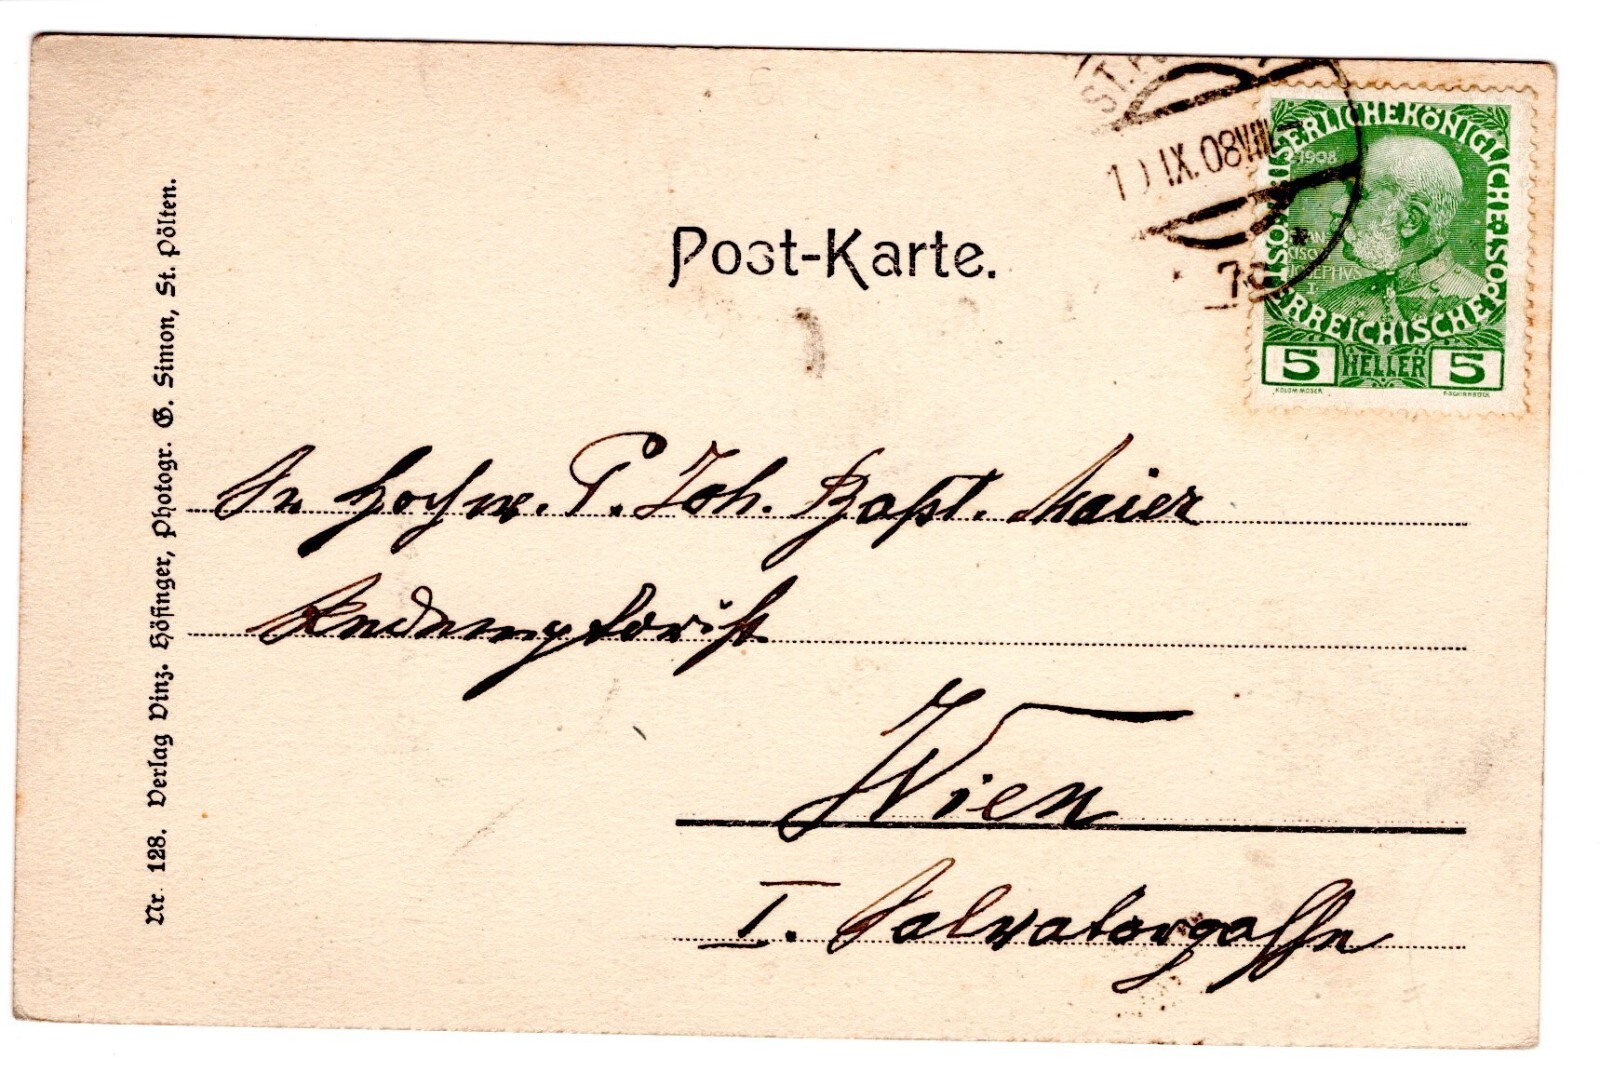 Post-Karte.
ST.P
1 IX.08 VIII
7c
KAISERLICHE KÖNIGLICHE
POST ÖSTERREICHISCHE
1908
JOSEPHVS
I.
5 HELLER 5
KOLOM·MOSER
Sr Hochw. P. Joh. Bapt. Maier
Redemptorist
Wien
I. Salvatorgasse
Nr. 128. Verlag Vinz. Höfinger, Photogr. G. Simon, St. Pölten.